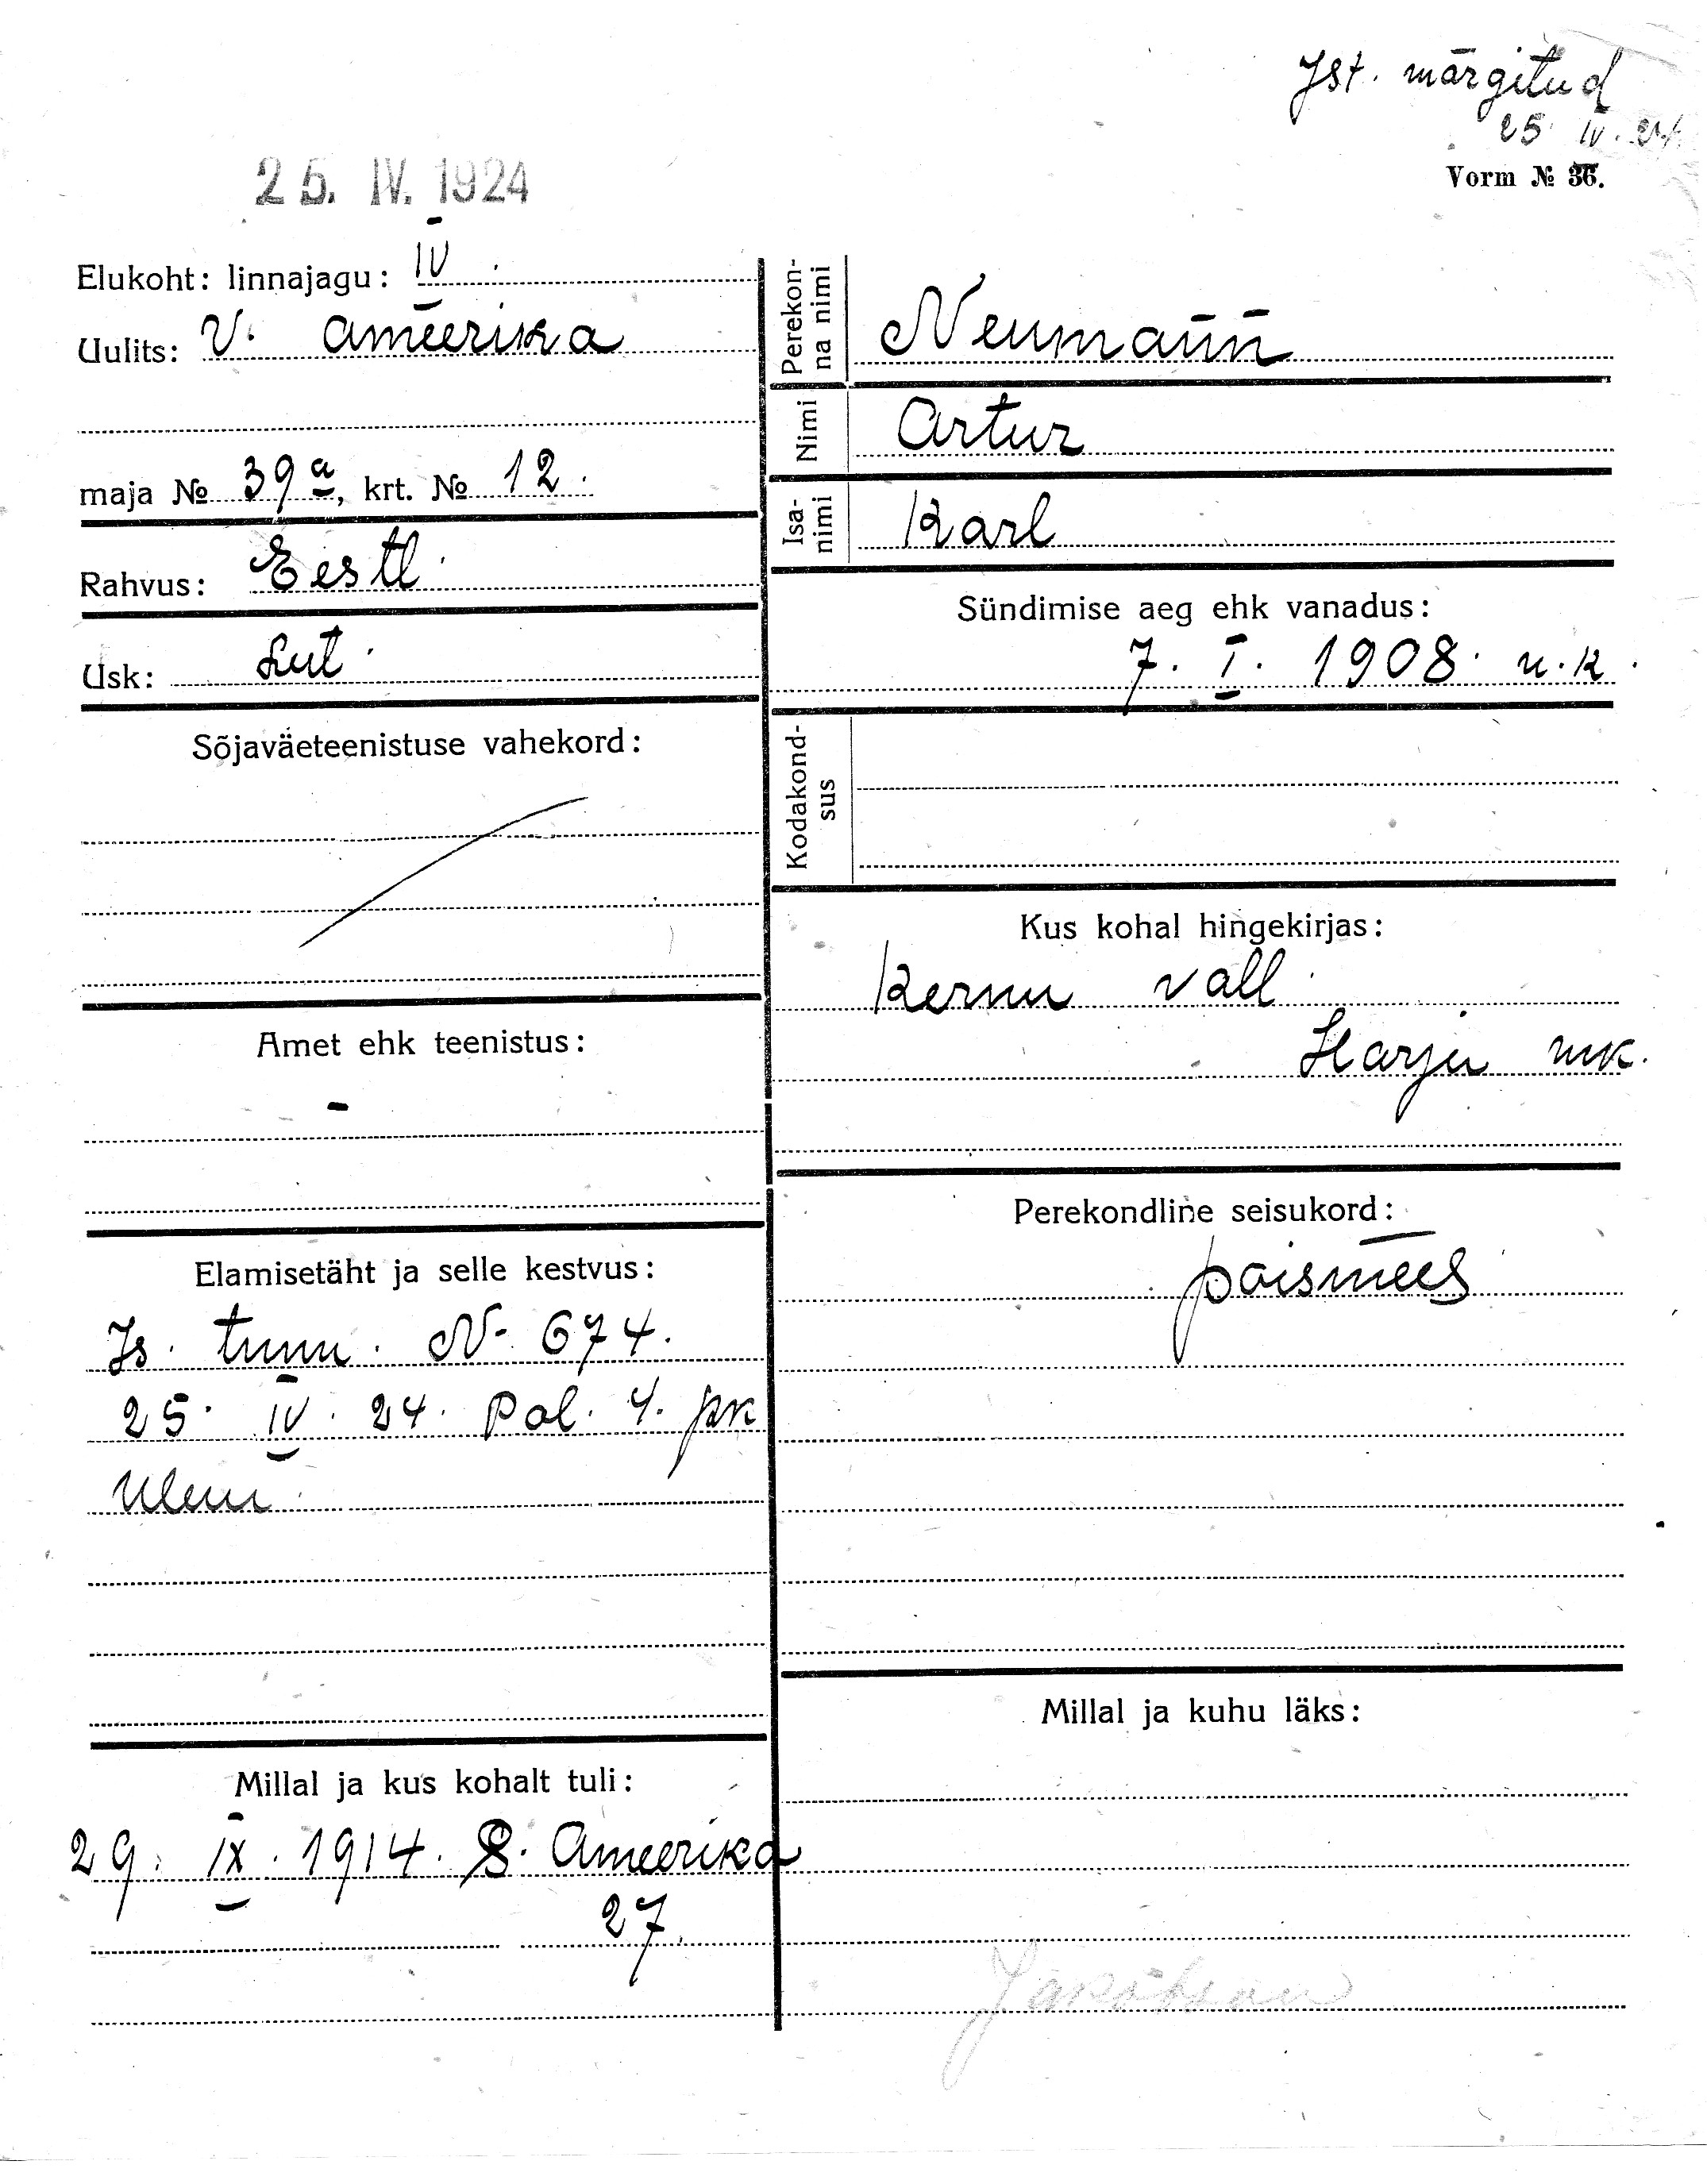 Ist. märgitud
25 IV. 24.
Vorm № 36.
25. IV. 1924
Elukoht: linnajagu: IV.
Uulits: V. Ameerika
maja № 39a, krt. № 12.
Rahvus: Eestl.
Usk: Lut.
Sõjaväeteenistuse vahekord:
Amet ehk teenistus:
-
Elamisetäht ja selle kestvus:
Is. tunn. N. 674.
25. IV. 24. Pol. 4. jsk
Millal ja kus kohalt tuli:
29. IX. 1914. S. Ameerika
27.
Perekonna nimi Neumann
Nimi Artur
Isanimi Karl
Sündimise aeg ehk vanadus:
7. I. 1908. u.k.
Kodakondsus
Kus kohal hingekirjas:
Kernu vall.
Harju mk.
Perekondline seisukord:
poismees
Millal ja kuhu läks:
Jakobson